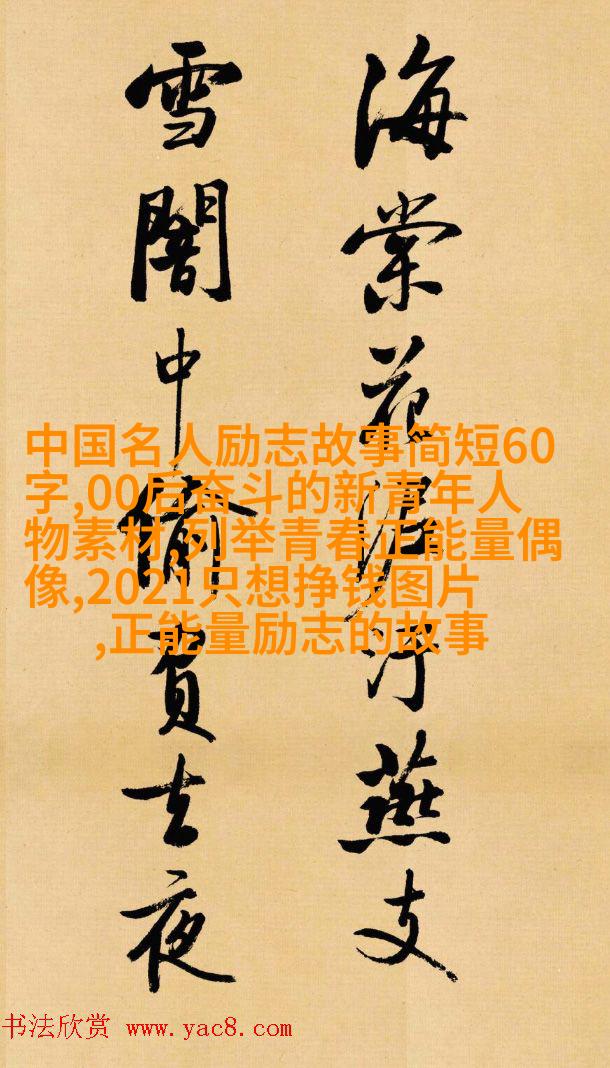 海棠花泥汙燕支
雪闇中偷負去夜
中国名人励志故事简短60
字,00后奋斗的新青年人
物素材,列举青春正能量偶
像,2021只想挣钱图片
,正能量励志的故事
书法欣赏 www.yac8.com